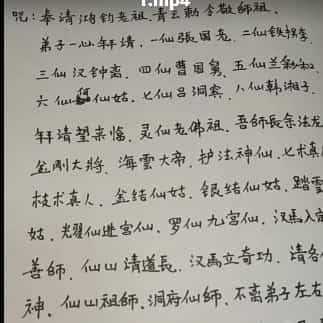 1.mp4
咒：奉请鸿钧老祖.青云勅令敬師祖.
弟子一心拜请，一仙張国老.二仙铁拐李.
三仙汉钟离．四仙曹国舅．五仙兰彩和．
六仙何仙姑．七仙吕洞宾．八仙韩湘子．
拜请望来临．灵仙老佛祖．吾師長余法龙
金剛大將．海雲大帝．护法神仙．七术真
枝术真人．金结仙姑．銀结仙姑．踏雲
姑．耀仙進宫仙．罗仙九宫仙．汉馬入宫
善師．仙山请道長．汉馬立奇功．请各
神．仙山祖師．洞府仙師．不离弟子左右